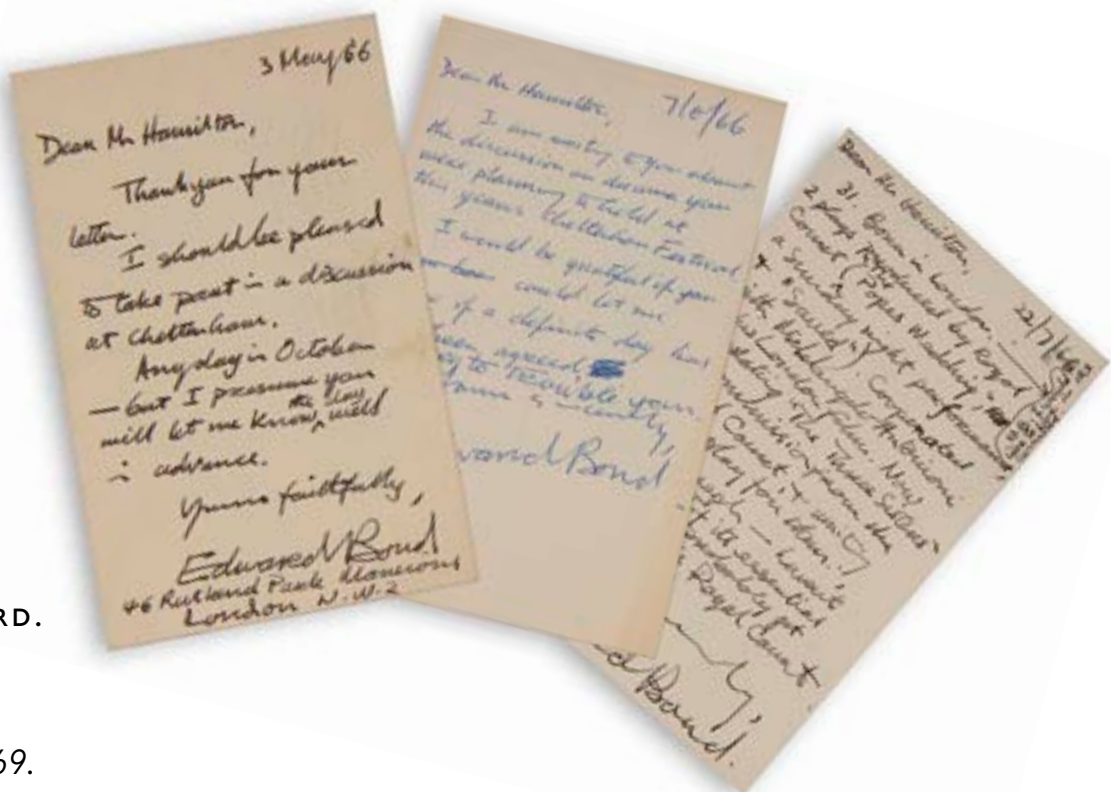 3 May 66
Dear Mr Hamilton,
Thank you for your
letter.
I should be pleased
to take part in a discussion
at Cheltenham.
Any day in October
— but I presume you
will let me know the day well
in advance.
Yours faithfully,
Edward Bond
46 Rutland Park Mansions
London N.W.2.
Dear Mr Hamilton,
7/6/66
I am writing to you about
the discussion on drama you
were planning to hold at
this years Cheltenham Festival
I would be grateful if you
could let me
if a definite day has
been agreed
to trouble you.
Yours sincerely,
ward Bond
Dear Mr Hamilton,
22/7/66
31. Born in London.
2 plays produced by Royal
Court (Popes Wedding,
a Sunday night performance,
& "Saved"). Cooperated
with Antonioni
New
The Three Sisters
commission from the
Court
play for them.
its essential
probably get
Royal Court
d Bond.
RD.
69.